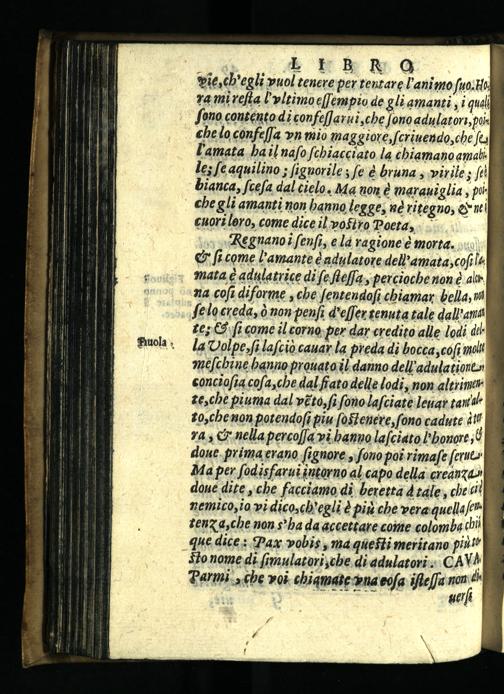 LIBRO
vie, ch'egli vuol tenere per tentare l'animo suo. Ho-
ra mi resta l'vltimo essempio de gli amanti, i quali
sono contento di confessarui, che sono adulatori, poi-
che lo confessa vn mio maggiore, scriuendo, che se
l'amata ha il naso schiacciato la chiamano amabi-
le; se aquilino; signorile; se è bruna, virile; se è
bianca, scesa dal cielo. Ma non è marauiglia, poi-
che gli amanti non hanno legge, nè ritegno, & ne i
cuori loro, come dice il vostro Poeta,
Regnano i sensi, e la ragione è morta.
& si come l'amante è adulatore dell'amata, cosi l'a-
mata è adulatrice di se stessa, percioche non è alcu-
na cosi diforme, che sentendosi chiamar bella, non
se lo creda, ò non pensi d'esser tenuta tale dall'aman
te; & si come il corno per dar credito alle lodi del-
Fauola.
la Volpe, si lasciò cauar la preda di bocca, cosi molte
meschine hanno prouato il danno dell'adulatione
conciosia cosa, che dal fiato delle lodi, non altrimen-
te, che piuma dal vẽto, si sono lasciate leuar tant'al-
to, che non potendosi piu sostenere, sono cadute à ter
ra, & nella percossa vi hanno lasciato l'honore, &
doue prima erano signore, sono poi rimase serue
Ma per sodisfarui intorno al capo della creanza
doue dite, che facciamo di beretta à tale, che ci è
nemico, io vi dico, ch'egli è più che vera quella sen-
tenza, che non s'ha da accettare come colomba chiũ
que dice: Pax vobis, ma questi meritano più to-
sto nome di simulatori, che di adulatori. CAVA.
Parmi, che voi chiamate vna cosa istessa non di-
uersi